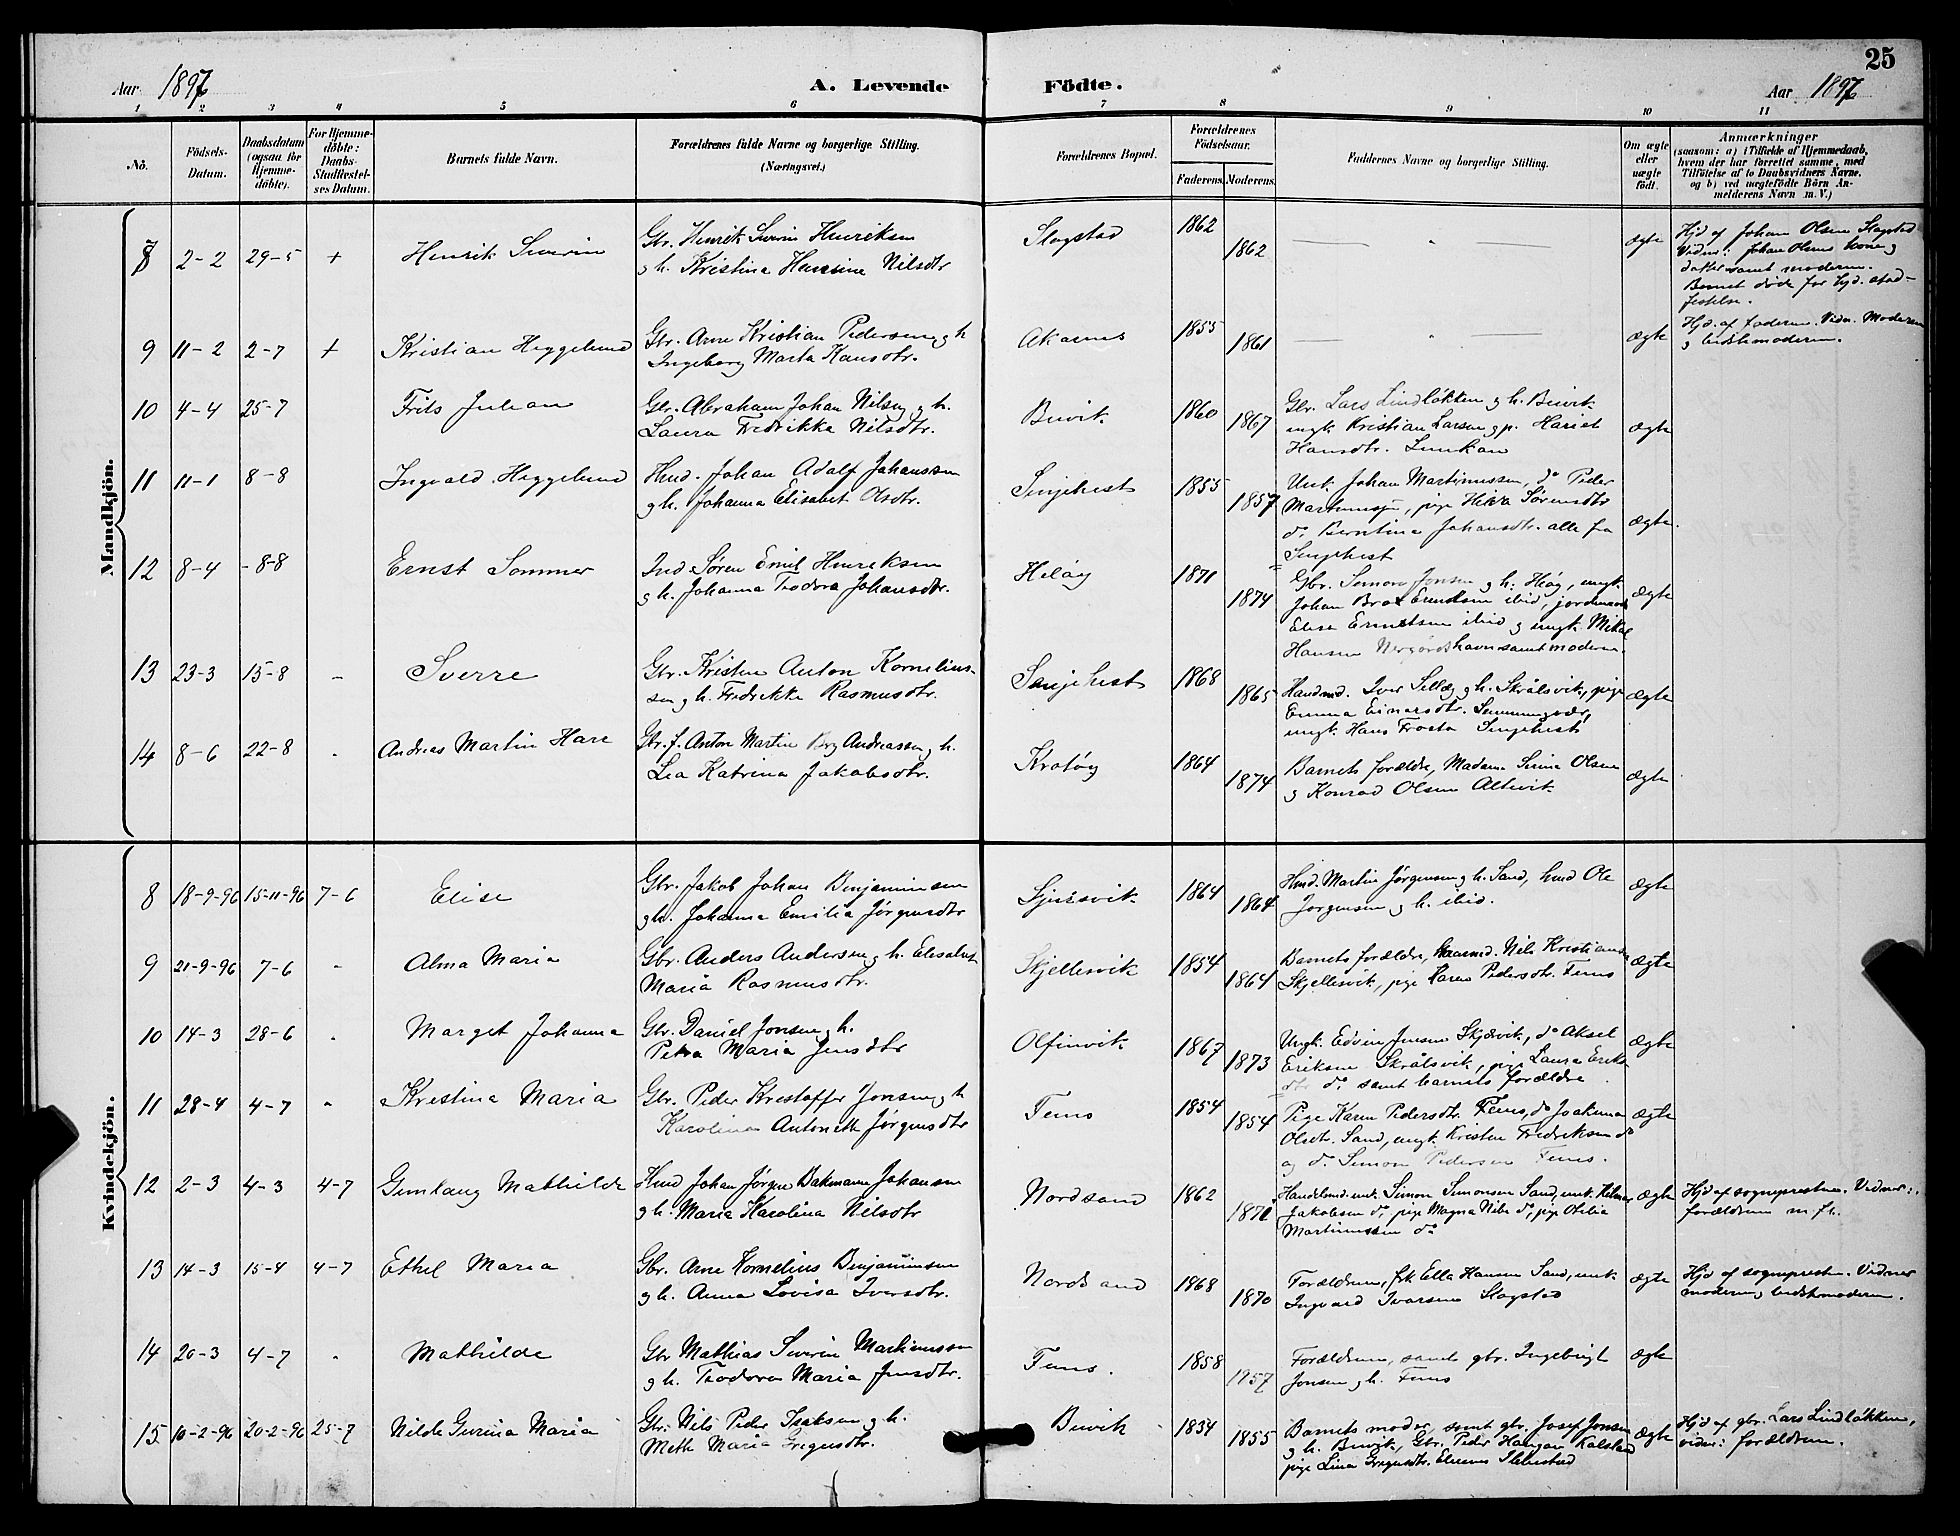 25
Aar 1897 A. Levende Födte. Aar 1897
1 2 3 4 5 6 7 8 9 10 11
Nö.
Födsels-Datum.
Daabsdatum (ogsaa for Hjemmedöbte).
For Hjemmedøbte: Daabs-Stadfæstelses Datum.
Barnets fulde Navn.
Forældrenes fulde Navne og borgerlige Stilling. (Næringsvei.)
Forældrenes Bopæl.
Forældrenes Födselsaar.
Faderens. Moderens.
Faddernes Navne og borgerlige Stilling.
Om ægte eller uægte födt.
Anmærkninger
(saasom: a) i Tilfælde af Hjemmedaab, hvem der har forrettet samme, med Tilföielse af to Daabsvidners Navne, og b) ved uægtefödte Börn Anmelderens Navn m. V.)
Mandkjön.
8 2-2 29-5 + Henrik Severin
Gbr. Henrik Severin Henriksen
og h. Kristina Hansine Nilsdtr
Slagstad 1862 1862 — " — ægte
Hjd af Johan Olsen Slagstad
Vidner: Johan Olsens kone og
datter samt moderen.
Barnet døde før hjd. stad-
festelse.
9 11-2 2-7 + Kristian Heggelund
Gbr. Arne Kristian Pedersen og h
Ingeborg Marta Hansdtr.
Akanes 1855 1861 — " — ægte
Hjd. af faderen. Vidn. Moderen
og bedstemoderen.
10 4-4 25-7 Frits Julian
Gbr. Abraham Johan Nilsen og h.
Laura Fredrikka Nilsdtr.
Buvik 1860 1867
Gbr. Lars Lindløkken og h. Buvik
ungk. Kristian Larsen og p. Hariet
Hansdtr.
ægte
11 11-1 8-8 Ingvald Heggelund
Hmd. Johan Adolf Johanssen
og h. Johanna Elisabet Olsdtr.
Senjehest 1855 1857
Unk. Johan Martinussen, do Peder
Martinussen, pige Hikka Sørensdtr
do. Berntina Johansdtr. alle fra
Senjehest
ægte.
12 8-4 -8-8 Ernst Sommer
Ind Søren Emil Henriksen
og h. Johanna Teodora Johansdtr.
Heløy 1871 1874
Gbr. Simon Jonsen og h. Heøy, ungk.
Johan Brox Erntsen ibid,
Elise Erntsen ibid og ungk. Mikal
Hansen Nergårdshavn samt moderen.
ægte
13 23-3 15-8 - Sverre
Gbr. Kristen Anton Kornelius-
sen og h. Fredrikke Rasmusdtr.
Senjehest 1868 1865
Handmd. Iver Selløg og h. Skrålsvik, pige
Emma Einarsdtr.
ungk. Hans Frosta Senjehest
ægte
14 8-6 22-8 . Andreas Martin Hare
Gbr. f. Anton Martin Berg Andreassen og h.
Lea Katrina Jakobsdtr.
Kråtøy 1864 1874
Barnets forældre, Madam Serine Olsen
og Konrad Olsen Altevik
ægte
Kvindekjön.
8 18-9-96 15-11-96 7-6 Elise
Gbr. Jakob Johan Benjaminsen
og h. Johanna Emilia Jørgensdtr
Sjursvik 1864 1864
Hmd. Martin Jørgensen og h. Sand, hmd Ole
Jørgensen og h. ibid.
ægte
9 21-9-96 7-6 " Alma Maria
Gbr. Anders Andersen og h. Elisabet
Maria Rasmusdtr.
Skjellesvik 1854 1864
Barnets forældre, Nils Kristiansen
Skjellesvik, pige Karen Pedersdtr. Tens
ægte
10 14-3 28-6 . Marget Johanna
Gbr. Daniel Jonsen og h.
Petra Maria Jensdtr
Olfinvik 1867 1873
Ungk. Edvin Jensen Skjævik, do Aksel
Eriksen Skrålsvik, pige Laura Eriks-
dtr do. samt barnets forældre
ægte
11 28-4 4-7 " Kristina Maria
Gbr. Peder Kristoffer Jonsen og h
Karolina Antonette Jørgensdtr
Tens 1854 1854
Pige Karen Pedersdtr. Tens, do Joakima
Olsdtr. Sand, ungk. Kristen Fredriksen do
og do. Simon Pedersen Tens.
ægte
12 2-3 4-3 4-7 Gunlaug Mathilde
Hmd Johan Jørgen Bakmann Johansen
og h. Maria Karolina Nilsdtr
Nordsand 1862 1871
Handelsmd. unk. Simon Simonsen Sand, unk. Hilmar
Jakobsen do, pige Magna Nils do, pige Otelia
Martinussen do
ægte
Hjd af sogneprsten. Vidner:
forældrene m. fl.
13 14-3 15-4 4-7 Ethel Maria
Gbr. Arne Kornelius Benjaminsen
og h. Anna Lovisa Iversdtr.
Nordsand 1868 1870
Forældrene, frk Ella Hansen Sand, unk.
Ingvard Ivarsen Slagstad
ægte
Hjd af sogneprsten. Vidner
moderen og bedstemoderen.
14 20-3 4-7 " Mathilde
Gbr Mathias Severin Martinussen
og h. Teodora Maria Jensdtr.
Tens. 1858 1957
Forældrene, samt gbr. Ingebrigt
Jonsen og h. Tens
ægte
15 10-2-96 20-2-96 25-7 Nilde Gurina Maria
Gbr. Nils Peder Isaksen og h.
Mette Maria Gregusdtr.
Buvik 1834 1855
Barnets moder, samt gbr. Josef Jonsen
og h. Buvik, Gbr. Peder Hangan Kalstad
pige Lina Gregusdtr.
ægte
Hjd af gbr. Lars Lindløkken,
vidn: forældrene.